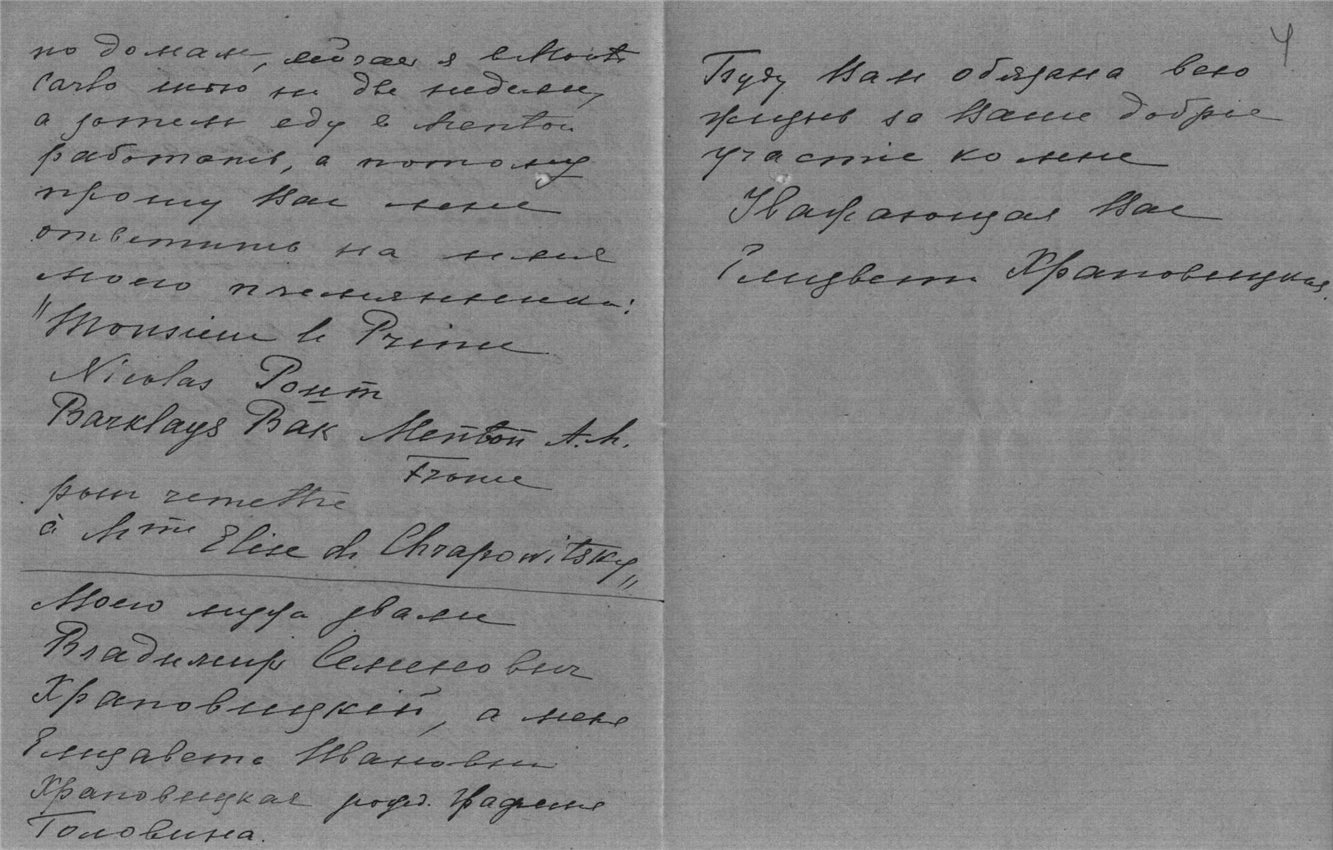 по домам, сейчас я в Monte
Carlo шью на две недели,
а затем еду в Menton
работать, а потому
прошу Вас мне
ответить на имя
моего племянника:
"Monsieur le Prince
Nicolas
Barklays Bak Menton A. M.
France
pour remettre
à Mme Elise de Chrapowitsky"
Моего мужа звали
Владимир Семенович
Храповицкій, а меня
Елизавета Ивановна
Храповицкая рожд. Графиня
Головина.
4
Буду Вам обязана всю
жизнь за Ваше доброе
участіе ко мне
Уважающая Вас
Елизавета Храповицкая.